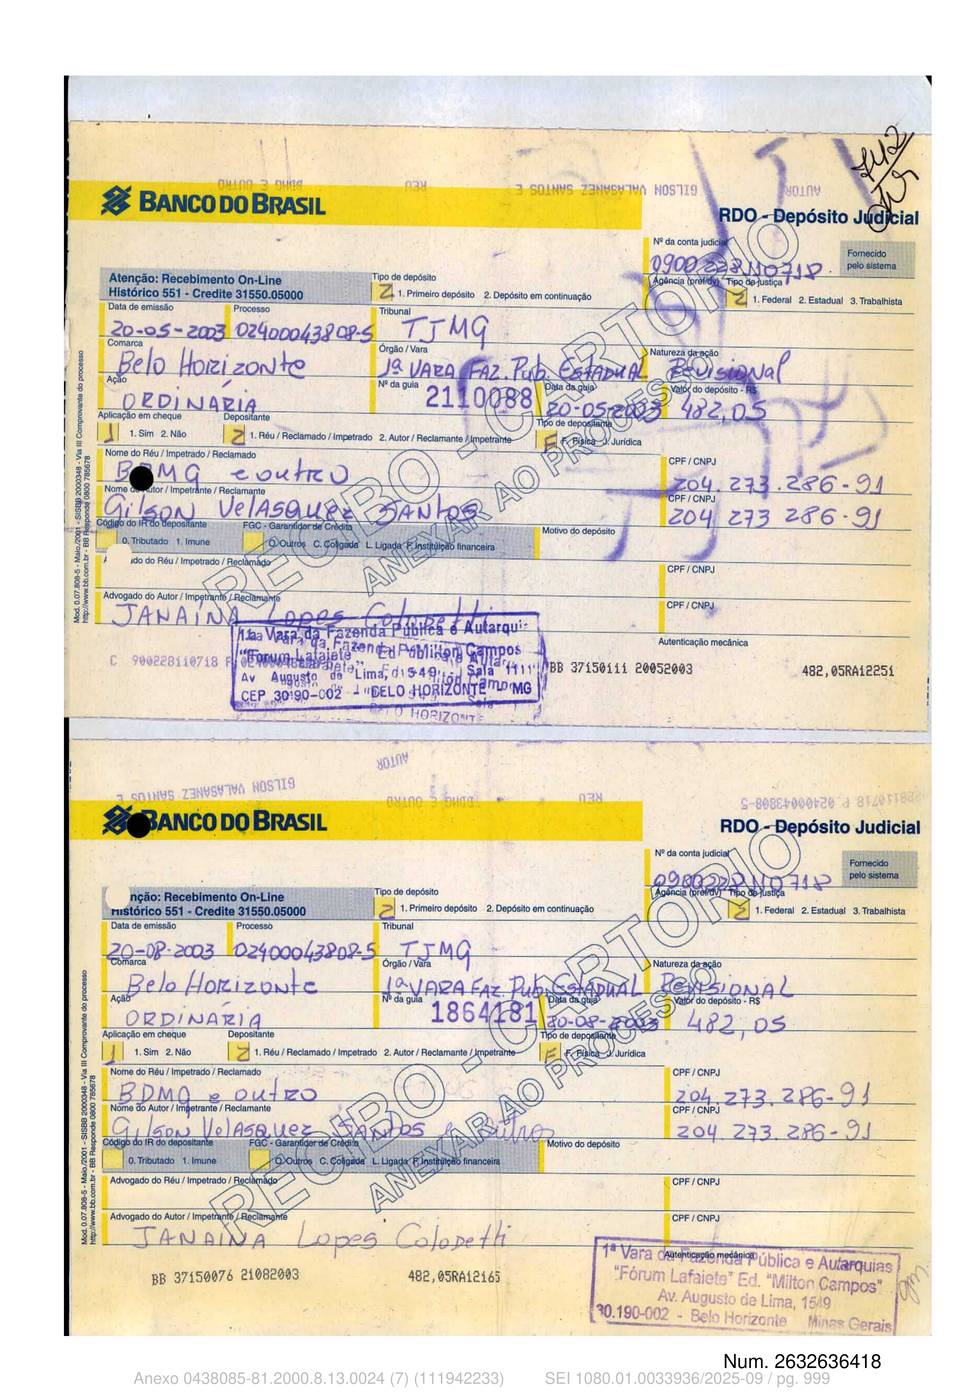 742
BANCO DO BRASIL
RDO - Depósito Judicial
Nº da conta judicial
0900 228110718
Fornecido pelo sistema
Atenção: Recebimento On-Line
Histórico 551 - Credite 31550.05000
Tipo de depósito
2 1. Primeiro depósito 2. Depósito em continuação
Agência (pref/dv) Tipo de justiça
2 1. Federal 2. Estadual 3. Trabalhista
Data da emissão Processo Tribunal
20-05-2003 02400043808-5 TJMG
Comarca Órgão / Vara Natureza da ação
Belo Horizonte 1ª VARA FAZ. Pub. ESTADUAL Revisional
Ação Nº da guia Data da guia Valor do depósito - R$
ORDINÁRIA 2110088 20-05-2003 482,05
Aplicação em cheque Depositante Tipo de depositante
1 1. Sim 2. Não 2 1. Réu / Reclamado / Impetrado 2. Autor / Reclamante / Impetrante F F. Física J. Jurídica
Nome do Réu / Impetrado / Reclamado CPF / CNPJ
BDMG e outro 204.273.286-91
Nome do Autor / Impetrante / Reclamante CPF / CNPJ
Gilson Velasquez SANTOS 204 273 286-91
Código do IR do depositante FGC - Garantidor de Crédito Motivo do depósito
0. Tributado 1. Imune O. Outros C. Coligada L. Ligada F. Instituição financeira
do do Réu / Impetrado / Reclamado CPF / CNPJ
Advogado do Autor / Impetrante / Reclamante CPF / CNPJ
JANAÍNA Lopes Colodetti
RECIBO - CARTÓRIO
ANEXAR AO PROCESSO
Autenticação mecânica
1ª Vara da Fazenda Pública e Autarqui
"Fórum Lafaiete" Ed. Milton Campos
Av Augusto de Lima, 1549 Sala 1111
CEP 30190-002 - BELO HORIZONTE MG
C 900228110718 BB 37150111 20052003 482,05RA12251
Mod. 0.07.808-5 - Maio/2001 - SISBB 2000348 - Via III Comprovante do processo
http://www.bb.com.br - BB Responde 0800 785678
AUTOR
GILSON VALASANEZ SANTOS E
REU
BDMG E OUTRO
BANCO DO BRASIL
RDO - Depósito Judicial
Nº da conta judicial
0900228110718
Fornecido pelo sistema
nção: Recebimento On-Line
Histórico 551 - Credite 31550.05000
Tipo de depósito
2 1. Primeiro depósito 2. Depósito em continuação
Agência (pref/dv) Tipo de justiça
2 1. Federal 2. Estadual 3. Trabalhista
Data da emissão Processo Tribunal
20-08-2003 02400043808-5 TJMG
Comarca Órgão / Vara Natureza da ação
Belo Horizonte 1ª VARA FAZ. Pub. ESTADUAL REVISIONAL
Ação Nº da guia Data da guia Valor do depósito - R$
ORDINÁRIA 1864181 20-08-2003 482,05
Aplicação em cheque Depositante Tipo de depositante
1 1. Sim 2. Não 2 1. Réu / Reclamado / Impetrado 2. Autor / Reclamante / Impetrante F F. Física J. Jurídica
Nome do Réu / Impetrado / Reclamado CPF / CNPJ
BDMG e outro 204.273.286-91
Nome do Autor / Impetrante / Reclamante CPF / CNPJ
Gilson Velasquez SANTOS e outros 204 273.286-91
Código do IR do depositante FGC - Garantidor de Crédito Motivo do depósito
0. Tributado 1. Imune O. Outros C. Coligada L. Ligada F. Instituição financeira
Advogado do Réu / Impetrado / Reclamado CPF / CNPJ
Advogado do Autor / Impetrante / Reclamante CPF / CNPJ
JANAINA Lopes Colodetti
RECIBO - CARTÓRIO
ANEXAR AO PROCESSO
Autenticação mecânica
BB 37150076 21082003 482,05RA12165
1ª Vara da Fazenda Pública e Autarquias
"Fórum Lafaiete" Ed. "Milton Campos"
Av. Augusto de Lima, 1549
30.190-002 - Belo Horizonte Minas Gerais
Mod. 0.07.808-5 - Maio/2001 - SISBB 2000348 - Via III Comprovante do processo
http://www.bb.com.br - BB Responde 0800 785678
Num. 2632636418
Anexo 0438085-81.2000.8.13.0024 (7) (111942233) SEI 1080.01.0033936/2025-09 / pg. 999